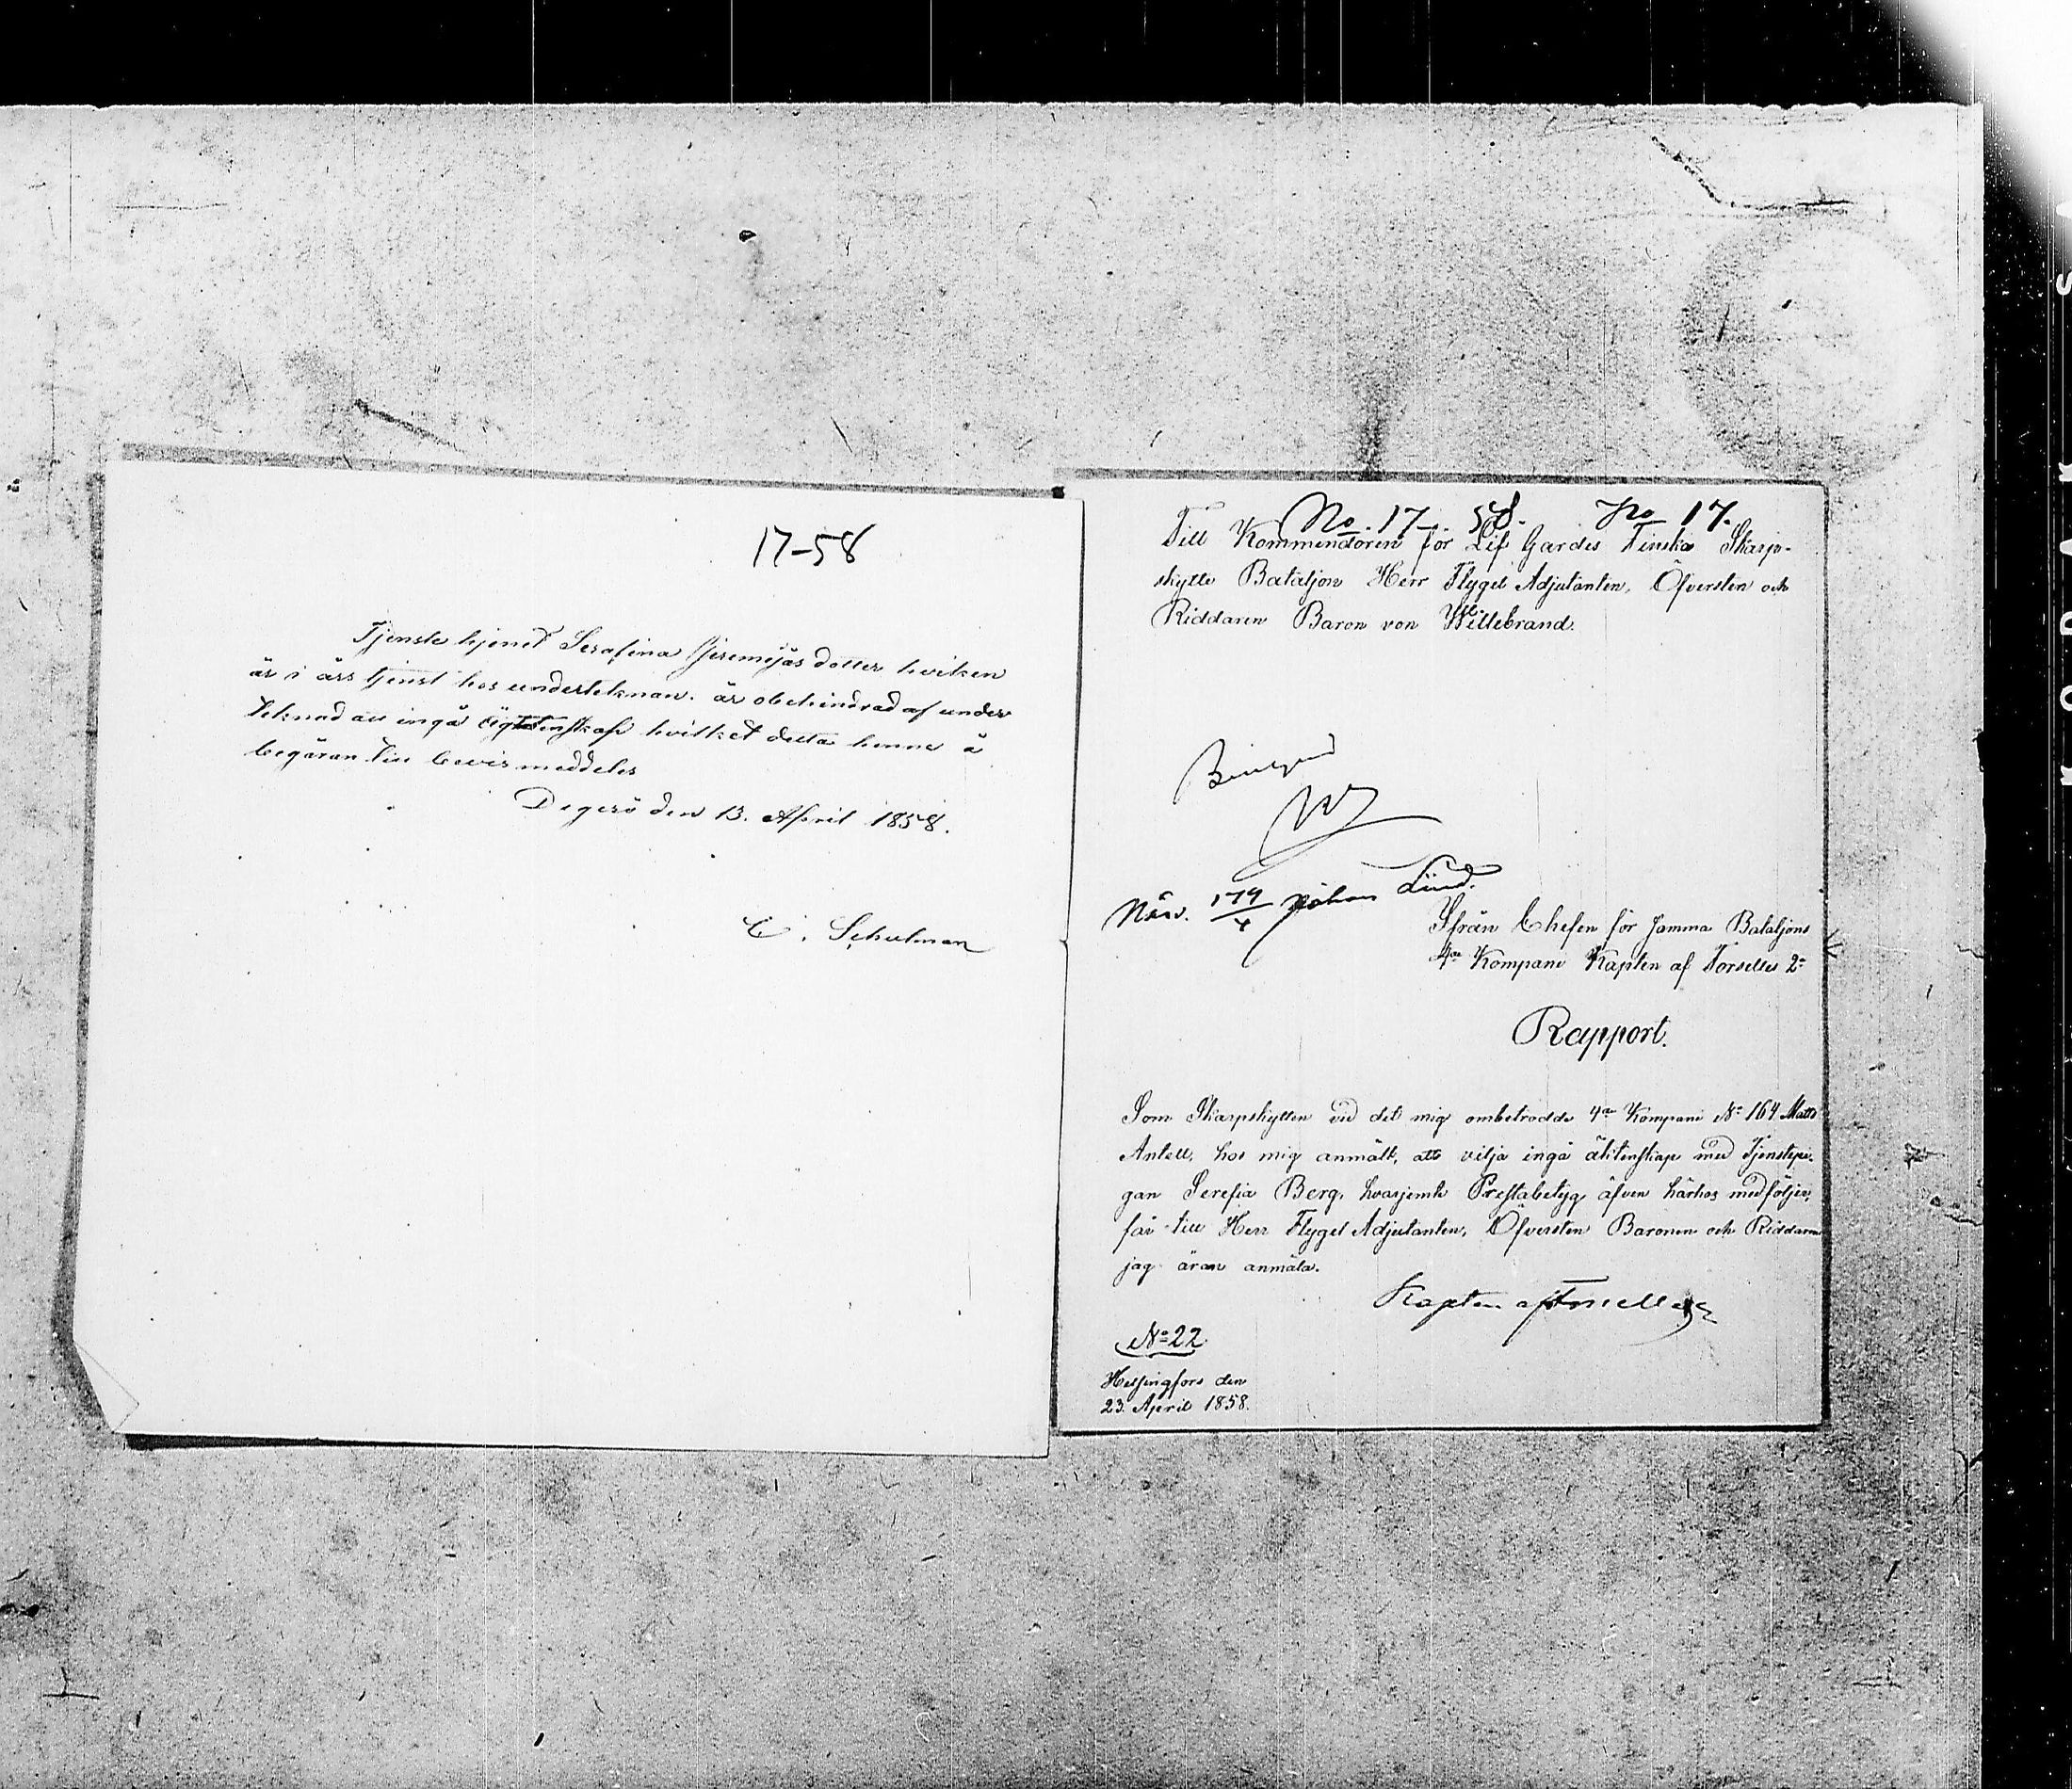 17-58
Tjenste hjonet Serafina Jeremijas dotter hvilken
är i års tjenst hos underteknan. är obehindrad af under
teknad att ingå ägtenskap hvilket detta henne å
begäran till bevis meddeles
Degerö den 13. April 1858.
C. Schulman
No. 17-58. No 17.
Till Kommendören för Lif Gardes Finska Skarp-
skytte Bataljon Herr Flygel Adjutanten, Öfversten och
Riddaren Baron von Willebrand.
W
Johan Lind.
Ifrån Chefen för samma Bataljons
4de Kompani Kapten af Forselles 2:
Rapport.
Som Skarpskytten vid det mig ombetrodde 4de Kompani No 164 Matts
Antell, hos mig anmält, att vilja ingå äktenskap med Tjenstepi-
gan Serefia Berg, hvarjemte Prestabetyg äfven härhos medföljer,
får till Herr Flygel Adjutanten, Öfversten Baronen och Riddaren
jag äran anmäla.
Kapten af Forselles
No 22
Helsingfors den
23. April 1858.